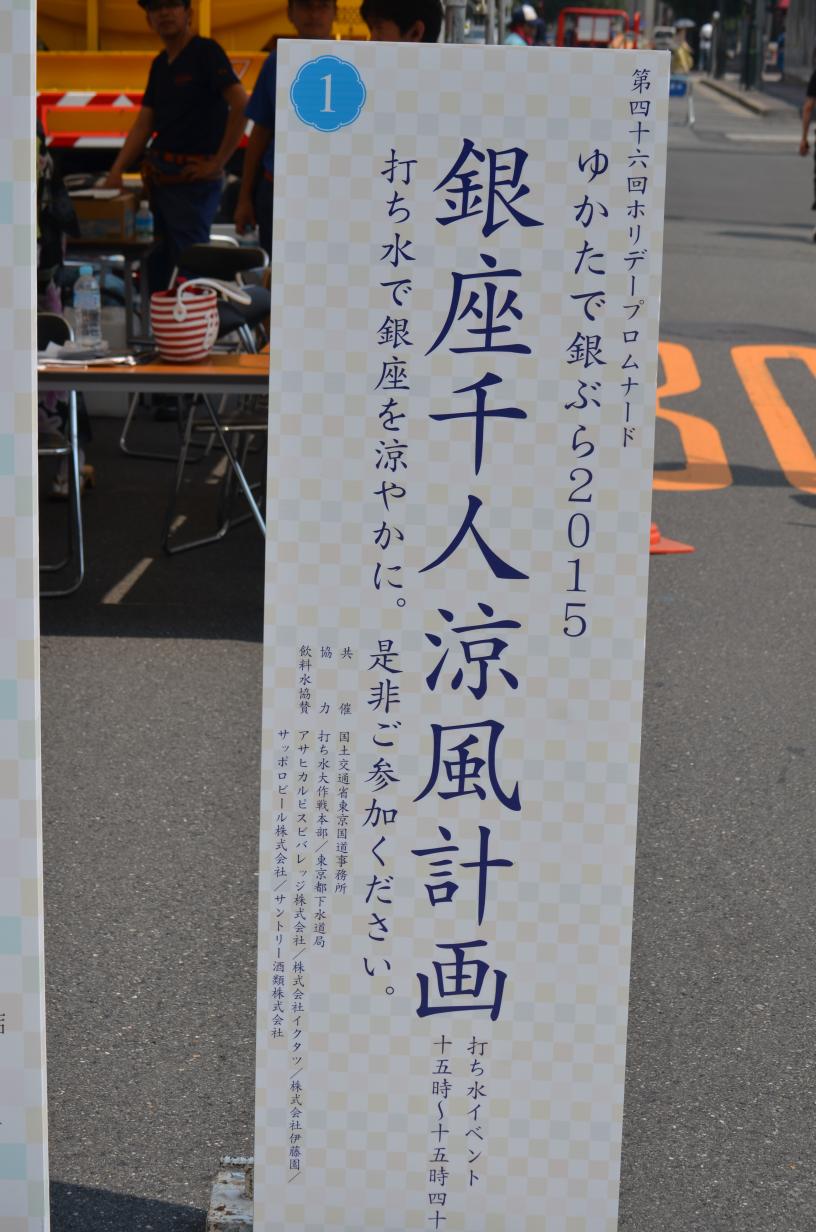 1
第四十六回ホリデープロムナード
ゆかたで銀ぶら2015
銀座千人涼風計画
打ち水イベント
十五時〜十五時四十
打ち水で銀座を涼やかに。是非ご参加ください。
共催 国土交通省東京国道事務所
協力 打ち水大作戦本部／東京都下水道局
飲料水協賛 アサヒカルピスビバレッジ株式会社／株式会社イクタツ／株式会社伊藤園／
サッポロビール株式会社／サントリー酒類株式会社
30